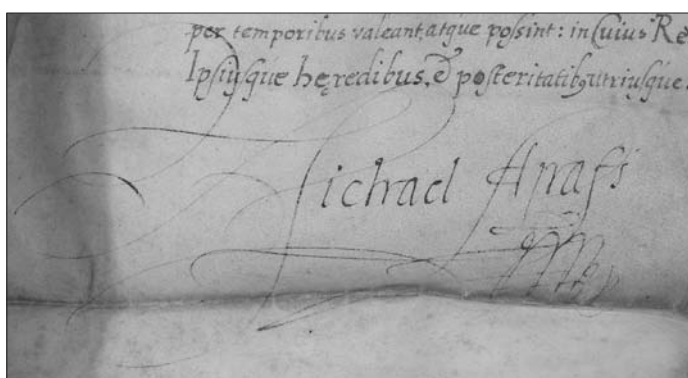 per temporibus valeant, atque poſsint: in Cuius Re
Ipsiusque hęredibus, & poſteritatibꝫ utriusque.
Michael Apafi